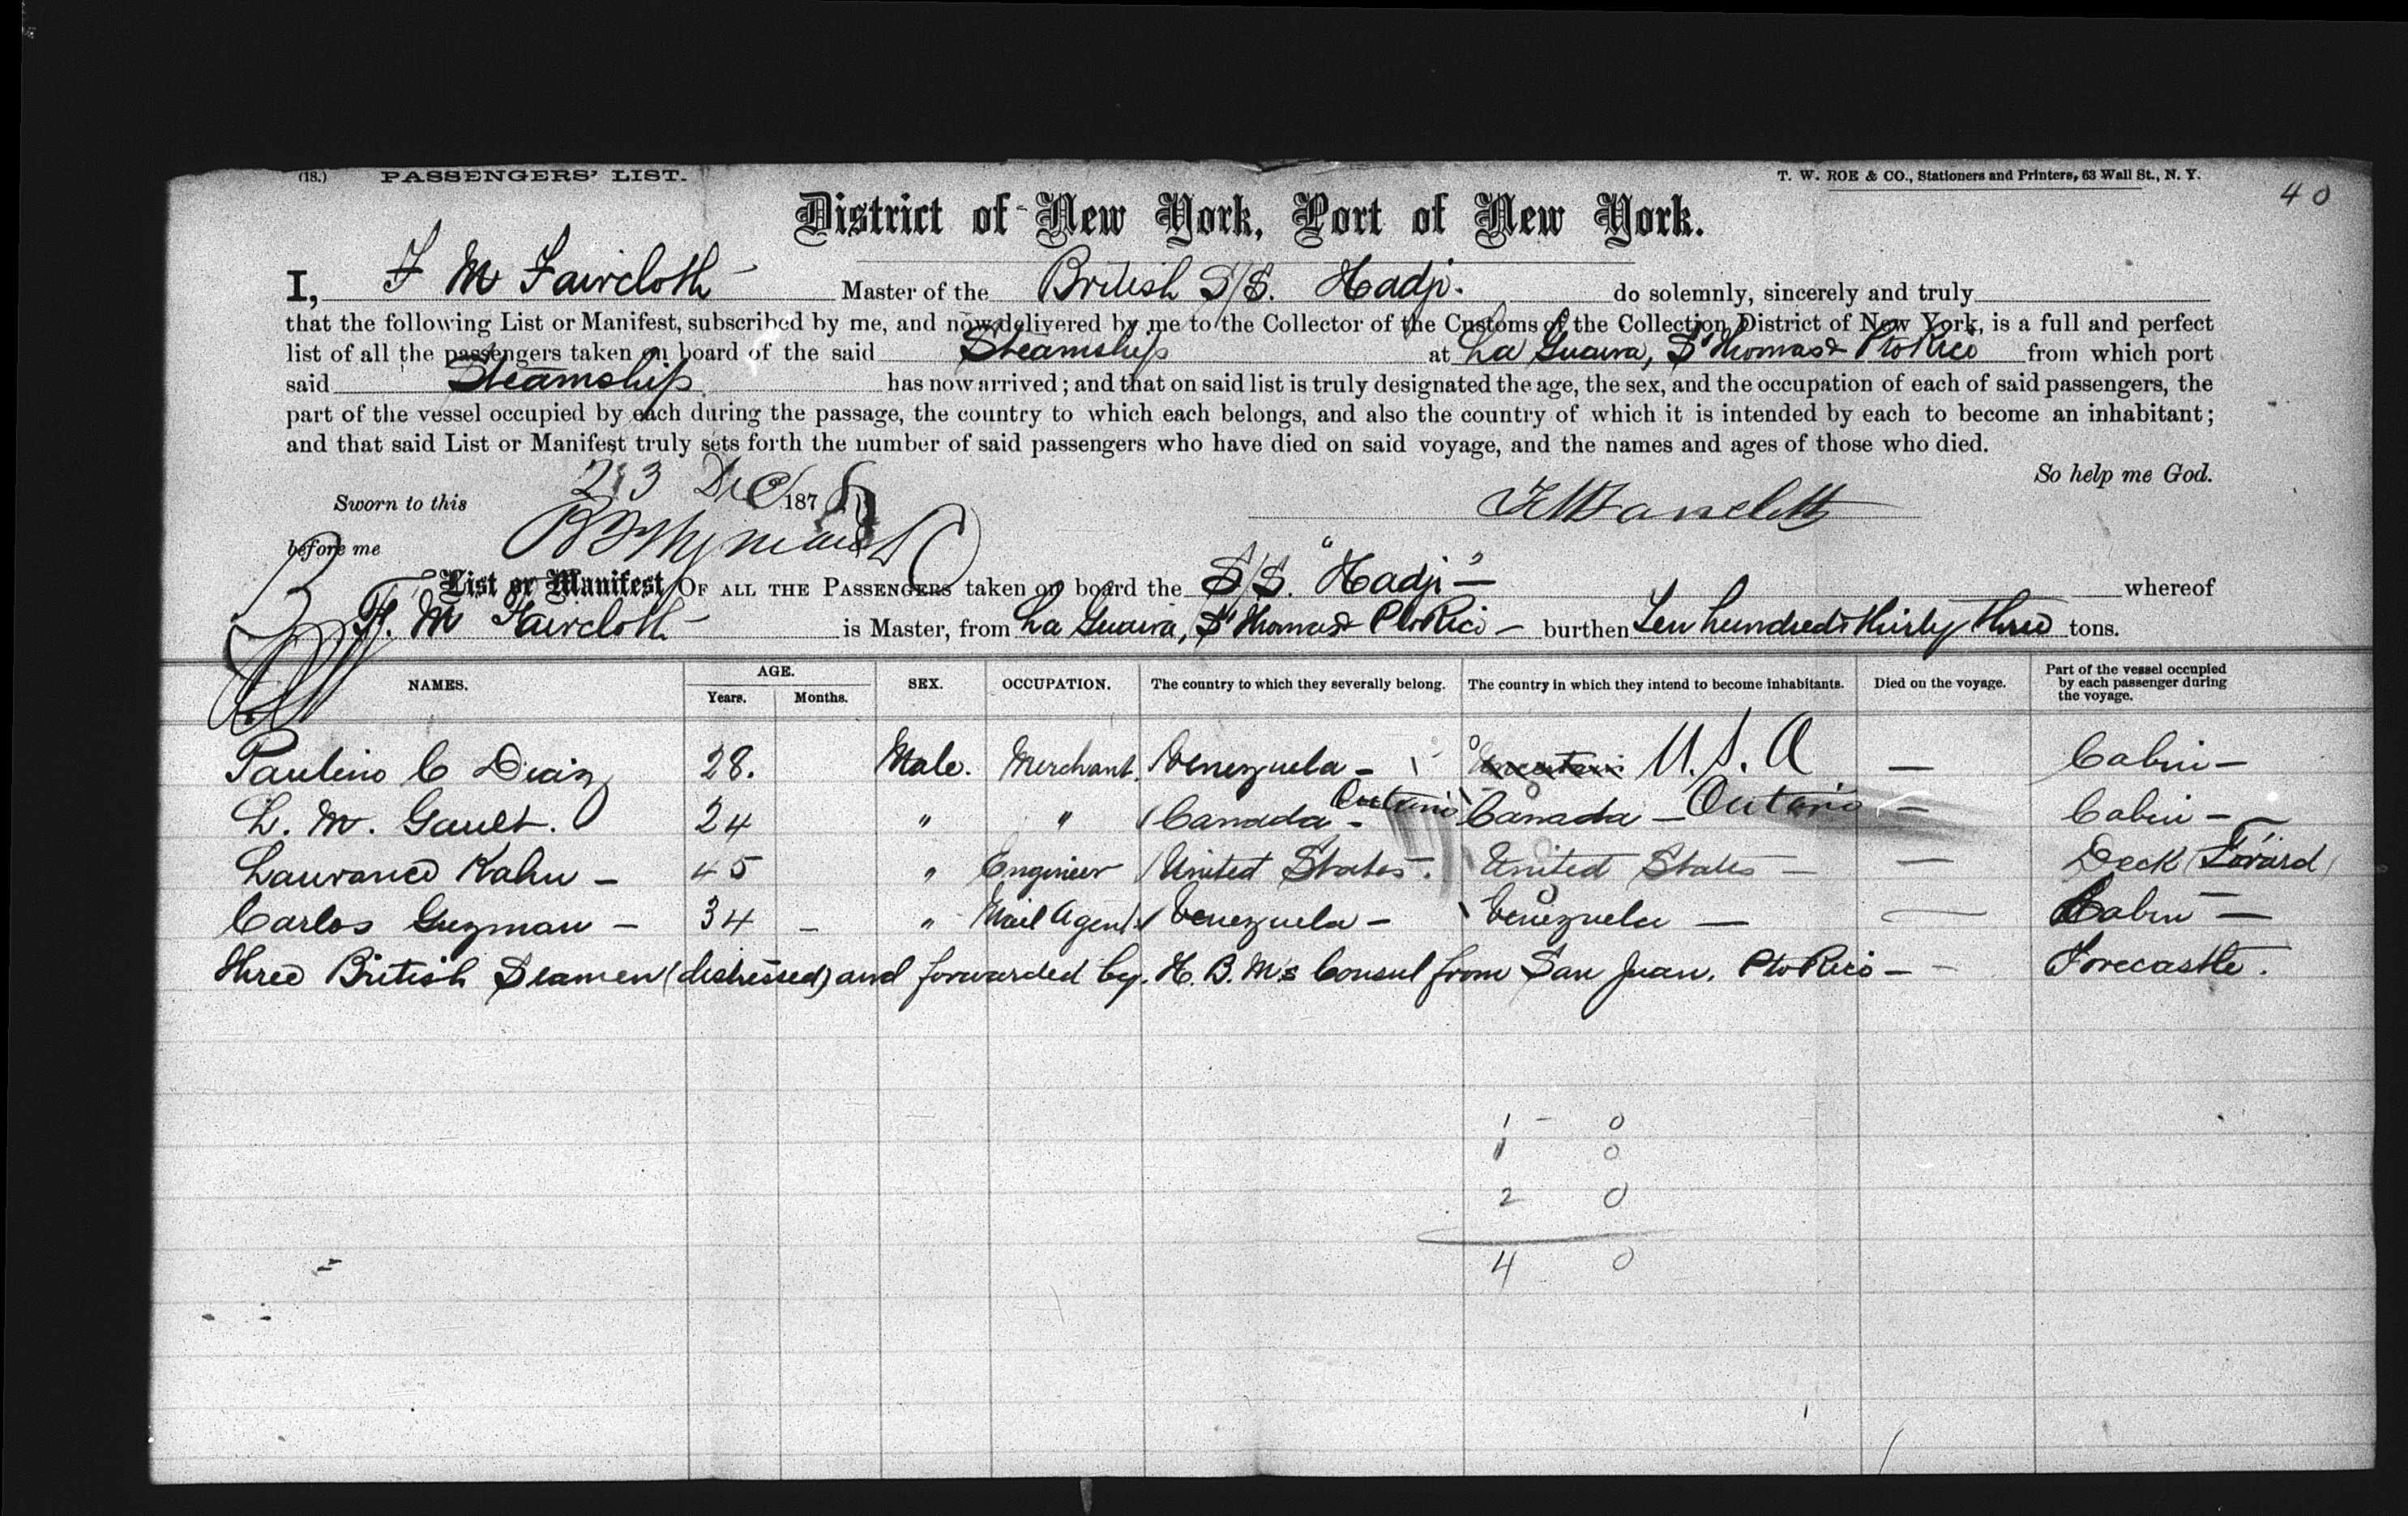 (18.) PASSENGERS' LIST. T. W. ROE & CO., Stationers and Printers, 63 Wall St., N. Y.
40
District of New York, Port of New York.
I, F M Faircloth Master of the British S/S. Hadji. do solemnly, sincerely and truly
that the following List or Manifest, subscribed by me, and now delivered by me to the Collector of the Customs of the Collection District of New York, is a full and perfect
list of all the passengers taken on board of the said Steamship at La Guaira, St Thomas & Pto Rico from which port
said Steamship has now arrived; and that on said list is truly designated the age, the sex, and the occupation of each of said passengers, the
part of the vessel occupied by each during the passage, the country to which each belongs, and also the country of which it is intended by each to become an inhabitant;
and that said List or Manifest truly sets forth the number of said passengers who have died on said voyage, and the names and ages of those who died.
So help me God.
Sworn to this 23 Dec 187
before me
List or Manifest OF ALL THE PASSENGERS taken on board the S/S. "Hadji" whereof
F. M Faircloth is Master, from La Guaira, St Thomas & Pto Rico — burthen Ten hundred & thirty three tons.
NAMES. AGE. Years. Months. SEX. OCCUPATION. The country to which they severally belong. The country in which they intend to become inhabitants. Died on the voyage. Part of the vessel occupied by each passenger during the voyage.
Paulino C Diaz 28. Male. Merchant. Venezuela - U.S.A — Cabin -
L. M. Gault. 24 " " Canada - Ontario Canada - Ontario — Cabin -
Laurance Kahn - 45 " Engineer United States - United States — — Deck (Forard)
Carlos Guzman - 34 - " Mail Agent Venezuela - Venezuela — — Cabin —
Three British Seamen (distressed) and forwarded by. H. B. M's Consul from San Juan. Pto Rico - - Forecastle.
1 - 0
1 0
2 0
4 0